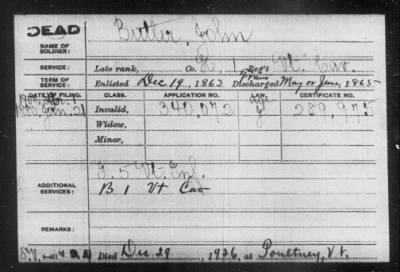 DEAD
NAME OF SOLDIER: Butler, John
SERVICE: Late rank, Co. L, 1 Reg't Vt. Cav.
TERM OF SERVICE: Enlisted Dec 19, 1863 Trans Discharged May or June, 1865
DATE OF FILING. CLASS. APPLICATION NO. LAW. CERTIFICATE NO.
Invalid, 340,072 289,975
Widow,
Minor,
ADDITIONAL SERVICES:
B 1 Vt Cav
REMARKS:
Died Dec. 29, 1926, at Poultney, Vt.